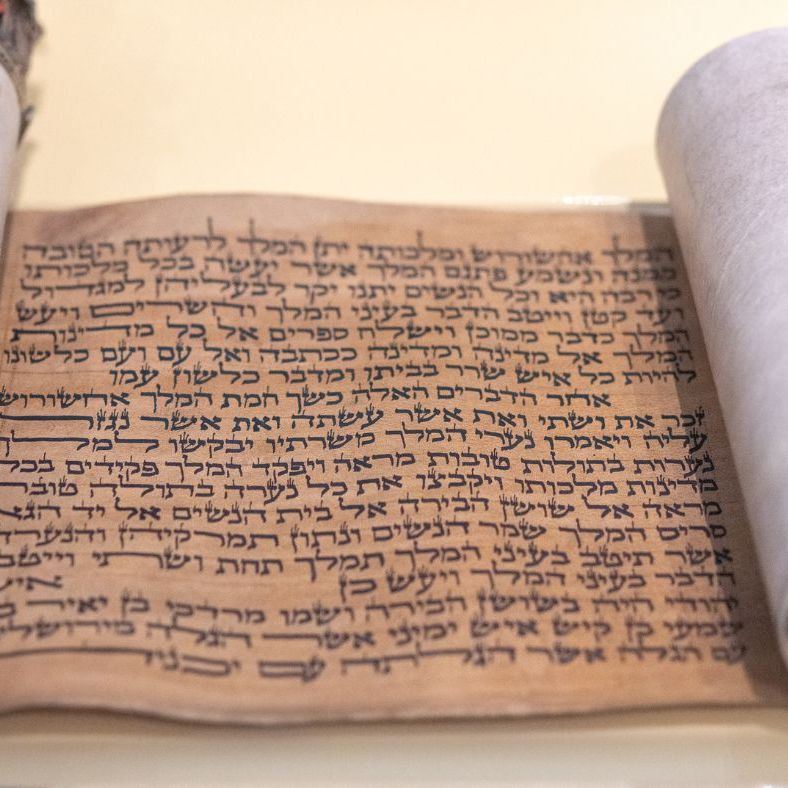 המלך אחשורוש ומלכותה יתן המלך לרעותה הטובה
ממנה ונשמע פתגם המלך אשר יעשה בכל מלכותו
כי רבה היא וכל הנשים יתנו יקר לבעליהן למגדול
ועד קטן וייטב הדבר בעיני המלך והשרים ויעש
המלך כדבר ממוכן וישלח ספרים אל כל מדינות
המלך אל מדינה ומדינה ככתבה ואל עם ועם כלשונו
להיות כל איש שרר בביתו ומדבר כלשון עמו
אחר הדברים האלה כשך חמת המלך אחשורוש
זכר את ושתי ואת אשר עשתה ואת אשר נגזר
עליה ויאמרו נערי המלך משרתיו יבקשו למלך
נערות בתולות טובות מראה ויפקד המלך פקידים בכל
מדינות מלכותו ויקבצו את כל נערה בתולה טובת
מראה אל שושן הבירה אל בית הנשים אל יד
סריס המלך שמר הנשים ונתון תמרקיהן והנערה
אשר תיטב בעיני המלך תמלך תחת ושתי וייטב
הדבר בעיני המלך ויעש כן איש
יהודי היה בשושן הבירה ושמו מרדכי בן יאיר
שמעי בן קיש איש ימיני אשר הגלה
עם הגלה אשר הגלתה עם יכניה